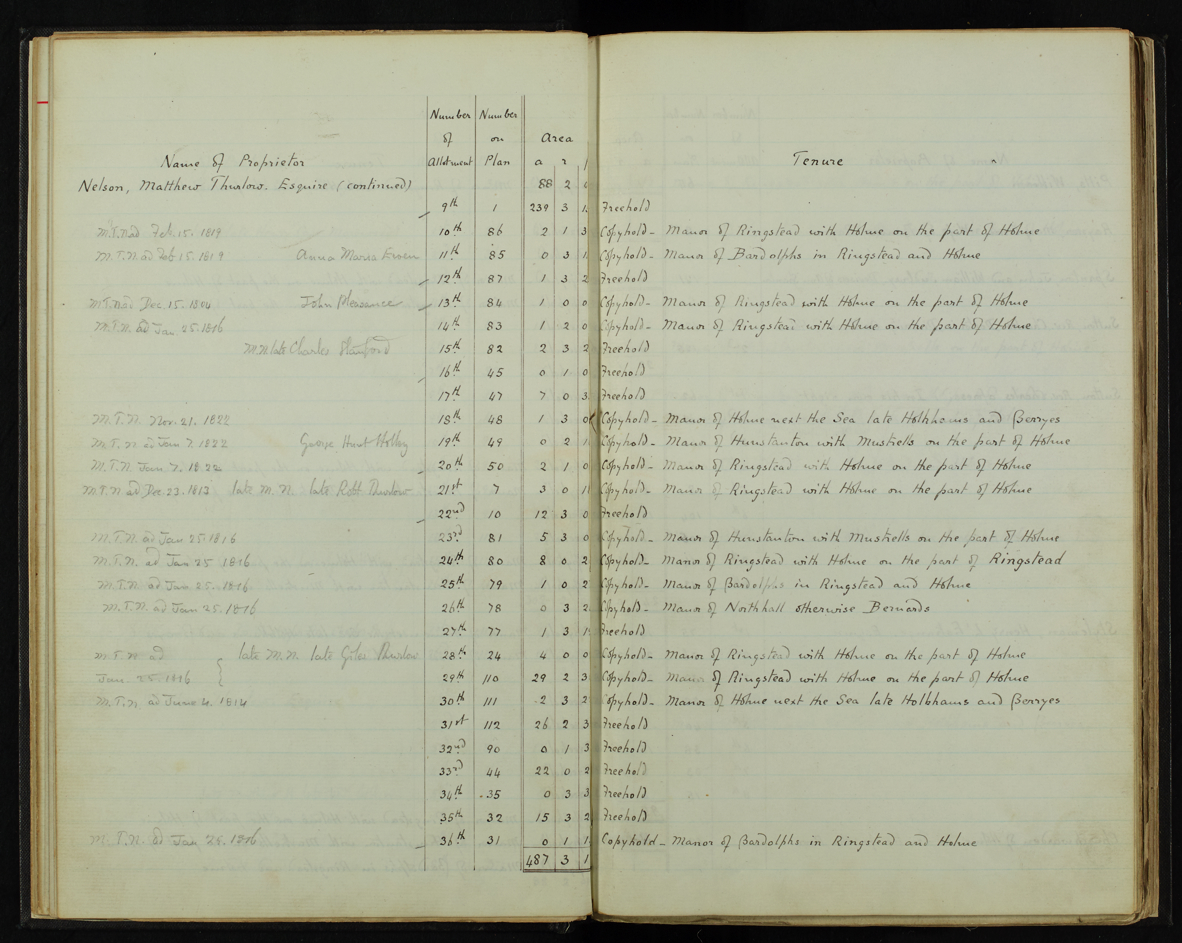 Number Number
of on Area
Name of Proprietor Allotment Plan a r Tenure
Nelson, Matthew Thurlow. Esquire (continued) 88 2 0
9th 1 239 3 Freehold
M.T.N. ad Feb. 15. 1819 10th 86 2 1 3 Copyhold - Manor of Ringstead with Holme on the part of Holme
M.T.N. ad Feb 15. 1819 Anna Maria Ewen 11th 85 0 3 Copyhold - Manor of Bardolphs in Ringstead and Holme
12th 87 1 3 2 Freehold
M.T.N. ad Dec. 15. 1804 John Pleasance 13th 84 1 0 0 Copyhold - Manor of Ringstead with Holme on the part of Holme
M.T.N. ad Jan. 25. 1816 14th 83 1 2 0 Copyhold - Manor of Ringstead with Holme on the part of Holme
M.N. late Charles 15th 82 2 3 2 Freehold
16th 45 0 1 0 Freehold
17th 47 7 0 3 Freehold
M.T.N. Nov. 21. 1822 18th 48 1 3 0 Copyhold - Manor of Holme next the Sea late Holkhams and Berryes
M.T.N. ad Jan 7. 1822 George Hunt Holley 19th 49 0 2 Copyhold - Manor of Hunstanton with Mustrells on the part of Holme
M.T.N. Jan. 7. 1822 20th 50 2 1 0 Copyhold - Manor of Ringstead with Holme on the part of Holme
M.T.N. ad Dec. 23. 1813 late M.N. late Robt Thurlow 21st 7 3 0 1 Copyhold - Manor of Ringstead with Holme on the part of Holme
22nd 10 12 3 0 Freehold
M.T.N. ad Jan 25. 1816 23rd 81 5 3 0 Copyhold - Manor of Hunstanton with Mustrells on the part of Holme
M.T.N. ad Jan 25 1816 24th 80 8 0 2 Copyhold - Manor of Ringstead with Holme on the part of Ringstead
M.T.N. ad Jan 25. 1816 25th 79 1 0 2 Copyhold - Manor of Bardolphs in Ringstead and Holme
M.T.N. ad Jan. 25. 1816 26th 78 0 3 2 Copyhold - Manor of Northhall otherwise Bernards
27th 77 1 3 1 Freehold
M.T.N. ad late M.N. late Giles Thurlow 28th 24 4 0 0 Copyhold - Manor of Ringstead with Holme on the part of Holme
Jan. 25. 1816 29th 110 29 2 3 Copyhold - Manor of Ringstead with Holme on the part of Holme
M.T.N. ad June 4. 1814 30th 111 2 3 2 Copyhold - Manor of Holme next the Sea late Holkhams and Berryes
31st 112 26 2 3 Freehold
32nd 90 0 1 3 Freehold
33rd 44 22 0 2 Freehold
34th 35 0 3 3 Freehold
35th 32 15 3 2 Freehold
M.T.N. ad Jan. 25. 1816 36th 31 0 1 1 Copyhold - Manor of Bardolphs in Ringstead and Holme
487 3 1